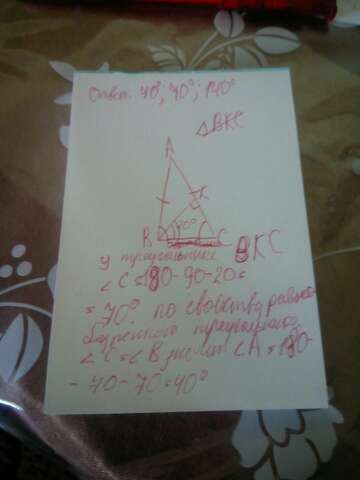 Ответ. 70°; 70°; 140°
△BKC
A
K
20°
B C
У треугольника BKC
∠C=180-90-20=
=70° по свойству равно-
бедренного треугольника
∠C=∠B значит ∠A=180-
-70-70=40°